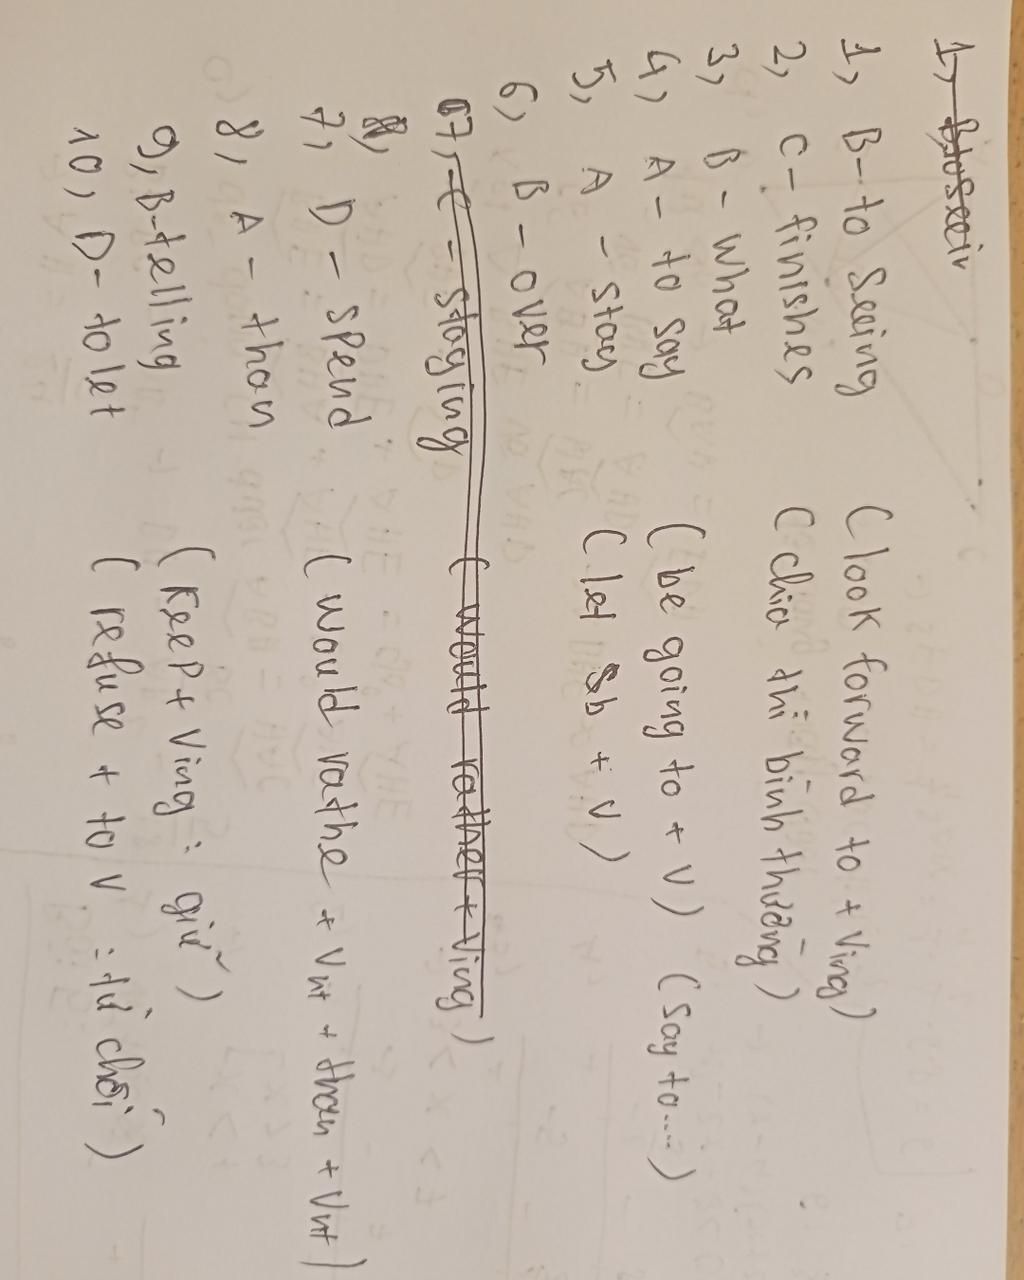 1, B to Seein
1, B - to Seeing (look forward to + Ving)
2, C - finishes (chia thì bình thường)
3, B - what
4, A - to say (be going to + V) (say to....)
5, A - stay (let Sb + V)
6, B - over
67, - C - staying (would rather + Ving)
8,
7, D - spend (would rathe + Vnt + than + Vnt)
8, A - than
9, B-telling (Keep + Ving : giữ)
10, D - to let (refuse + to V : từ chối)